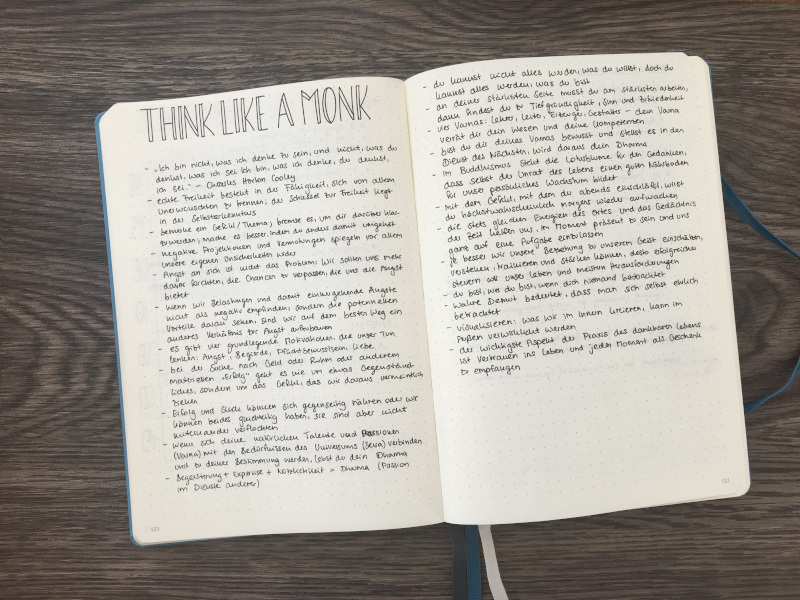 THINK LIKE A MONK
- „Ich bin nicht, was ich denke zu sein, und nicht, was du
denkst, was ich sei. Ich bin, was ich denke, du denkst,
ich sei." - Charles Horton Cooley
- echte Freiheit besteht in der Fähigkeit, sich von allem
Unerwünschten zu trennen; der Schlüssel zur Freiheit liegt
in der Selbsterkenntnis
- bemerke ein Gefühl / Thema, bremse es, um dir darüber klar
zu werden; mache es besser, indem du anders damit umgehst
- negative Projektionen und Vermutungen spiegeln vor allem
unsere eigenen Unsicherheiten wider
- Angst an sich ist nicht das Problem: Wir sollten uns mehr
davor fürchten, die Chancen zu verpassen, die uns die Angst
bietet
- wenn wir Belastungen und damit einhergehende Ängste
nicht als negativ empfinden, sondern die potenziellen
Vorteile daran sehen, sind wir auf dem besten Weg ein
anderes Verhältnis zur Angst aufzubauen
- es gibt vier grundlegende Motivationen, die unser Tun
lenken: Angst, Begierde, Pflichtbewusstsein, Liebe
- bei der Suche nach Geld oder Ruhm oder anderem
materiellen „Erfolg" geht es nie um etwas Gegenständ-
liches, sondern um das Gefühl, das wir daraus vermeintlich
ziehen
- Erfolg und Glück können sich gegenseitig nähren oder wir
können beides gleichzeitig haben, sie sind aber nicht
miteinander verflochten
- wenn sich deine natürlichen Talente und Passionen
(Varna) mit den Bedürfnissen des Universums (Seva) verbinden
und zu deiner Bestimmung werden, lebst du dein Dharma
- Begeisterung + Expertise + Nützlichkeit = Dharma (Passion
im Dienste anderer)
121
- du kannst nicht alles werden, was du willst, doch du
kannst alles werden, was du bist
- an deiner stärksten Seite musst du am stärksten arbeiten,
dann findest du zu Tiefgründigkeit, Sinn und Zufriedenheit
- vier Varnas: Lehrer, Leiter, Erzeuger, Gestalter - dein Varna
verrät dir dein Wesen und deine Kompetenzen
- bist du dir deines Varnas bewusst und stellst es in den
Dienst des Nächsten, wird daraus dein Dharma
- im Buddhismus steht die Lotusblume für den Gedanken,
dass selbst der Unrat des Lebens einen guten Nährboden
für unser persönliches Wachstum bildet
- mit dem Gefühl, mit dem du abends einschläfst, wirst
du höchstwahrscheinlich morgens wieder aufwachen
- die stets gleichen Energien des Ortes und das Gedächtnis
der Zeit helfen uns, im Moment präsent zu sein und uns
ganz auf eine Aufgabe einzulassen
- je besser wir unsere Beziehung zu unserem Geist einschätzen,
verstehen, trainieren und stärken können, desto erfolgreicher
steuern wir unser Leben und meistern Herausforderungen
- du bist, wer du bist, wenn dich niemand beobachtet
- wahre Demut bedeutet, dass man sich selbst ehrlich
betrachtet
- visualisieren: was wir im Innern kreieren, kann im
Außen verwirklicht werden
- der wichtigste Aspekt der Praxis des dankbaren Lebens
ist Vertrauen ins Leben und jeden Moment als Geschenk
zu empfangen
122